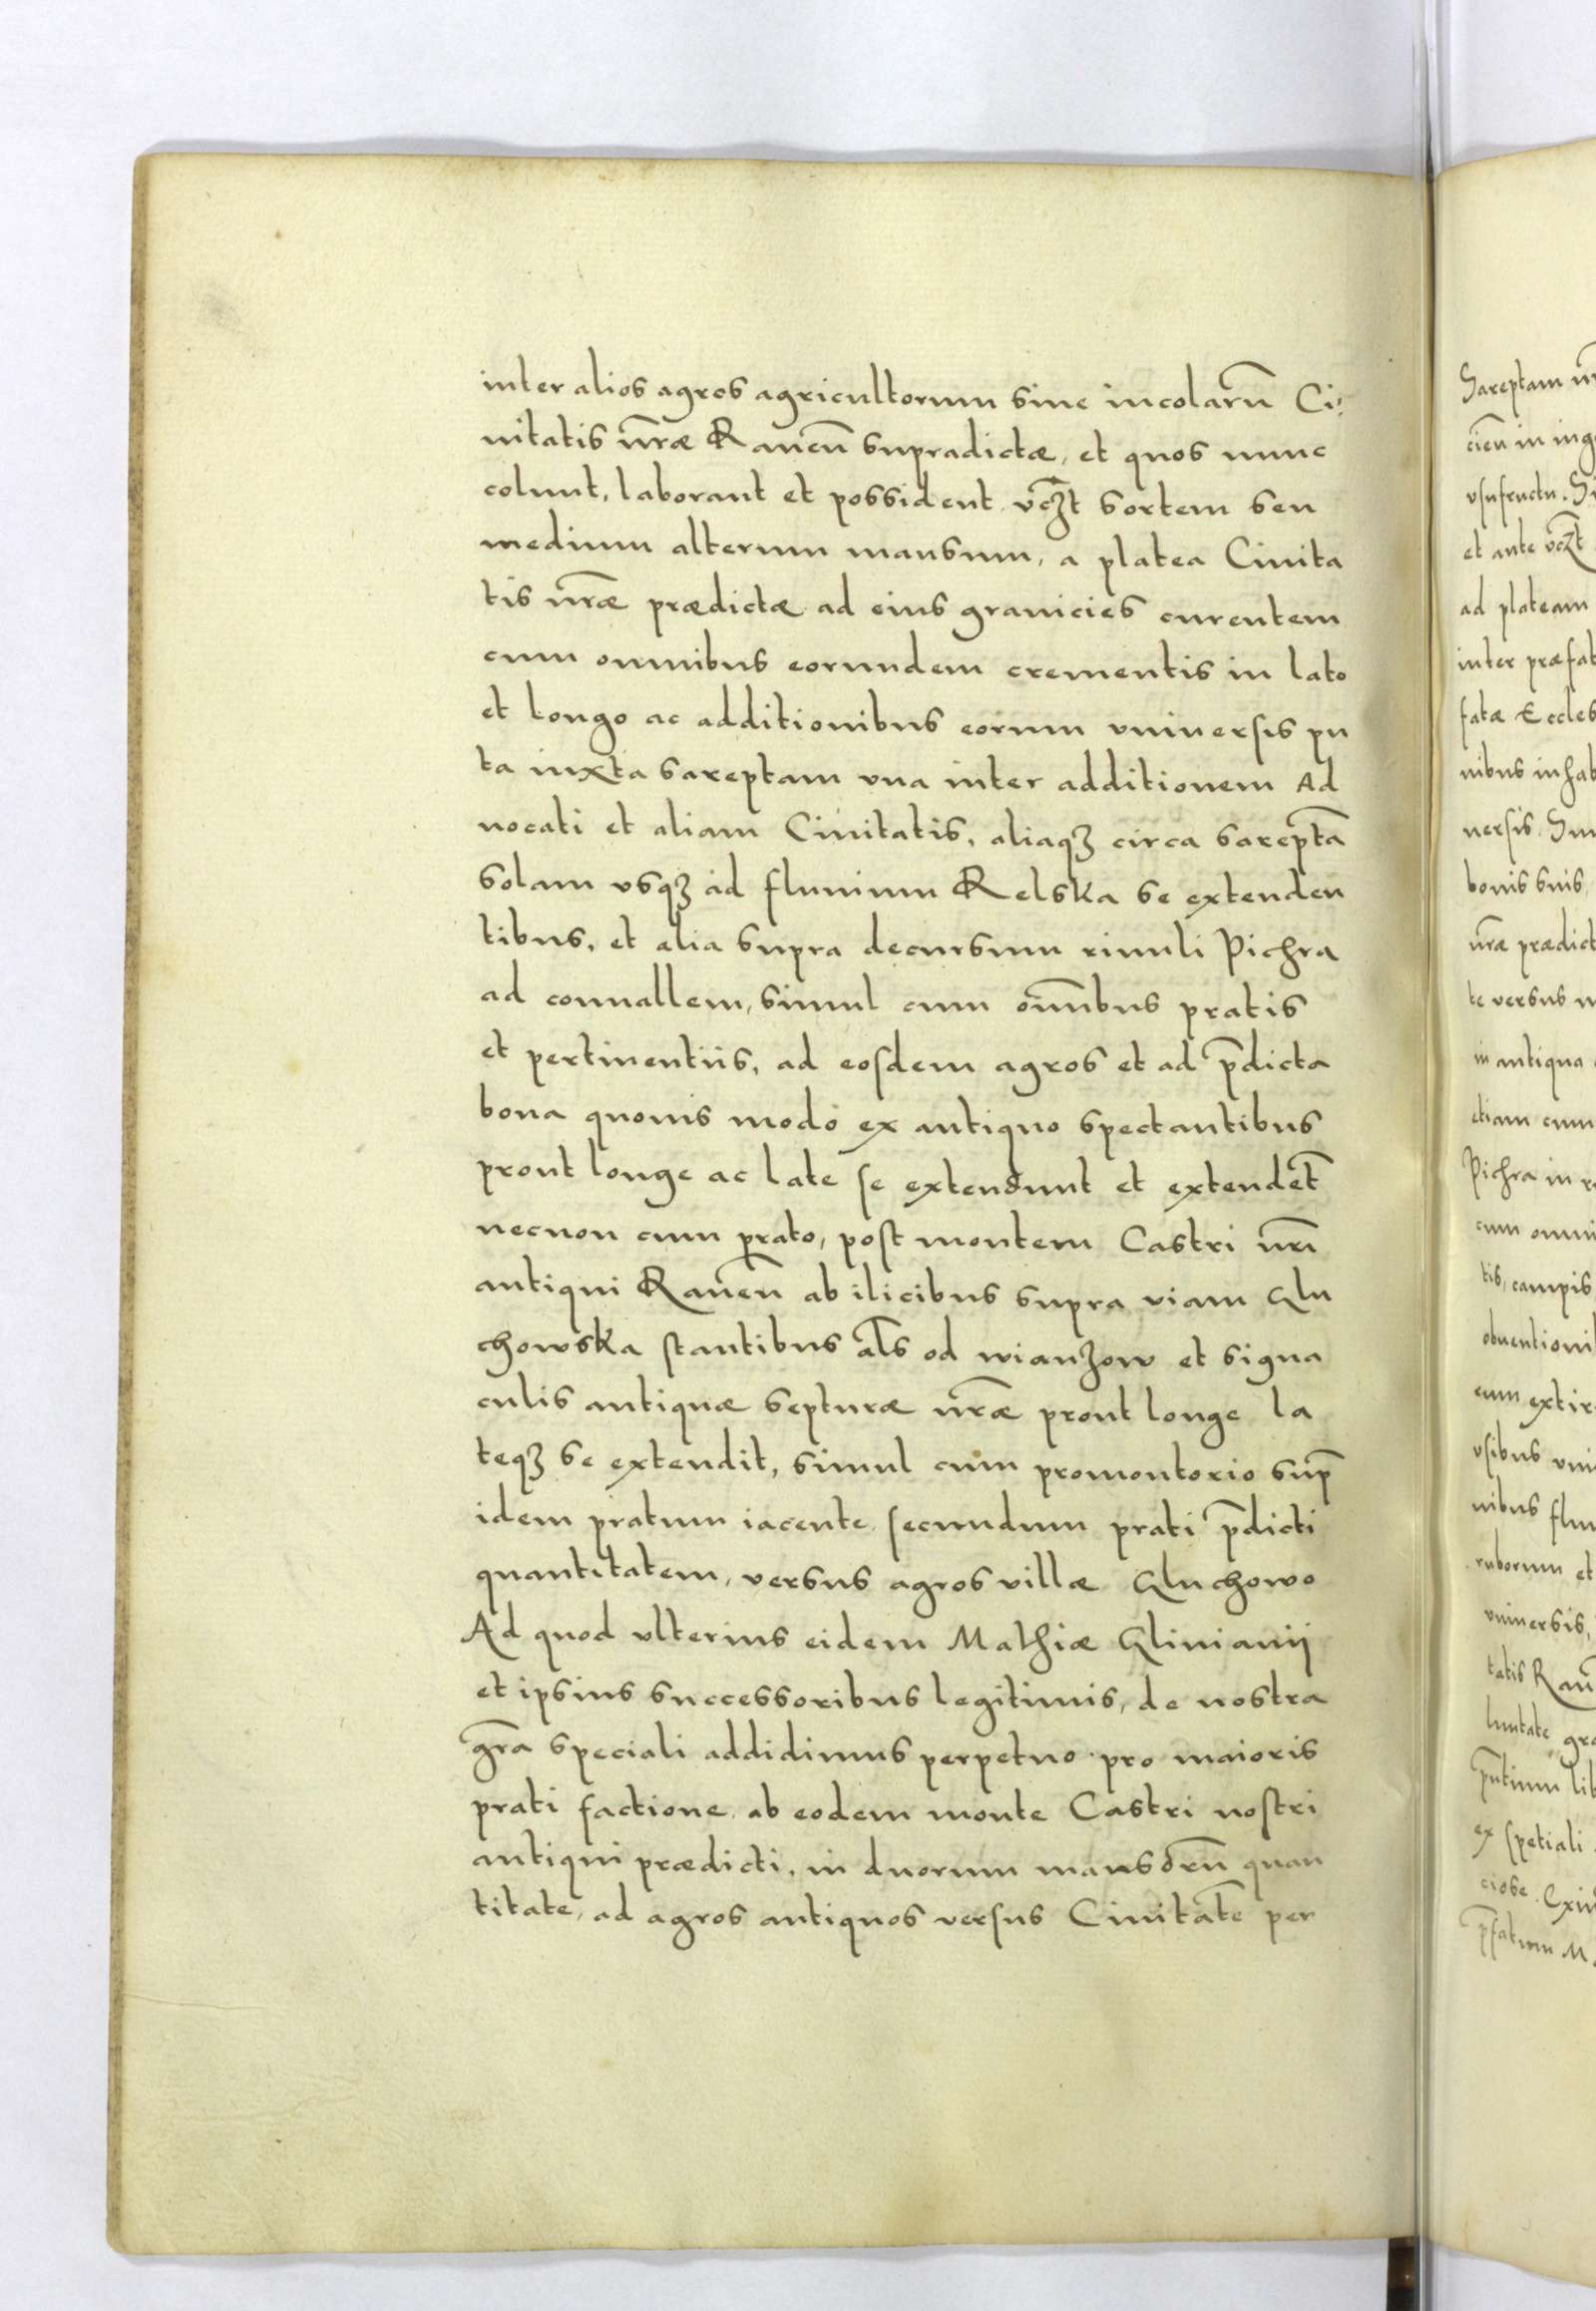 inter alios agros agricultorum sine incolarū Ci:
uitatis nr̄æ Rauen̄ supradictæ, et quos nunc
colunt, laborant et possident vcz̄t sortem seu
medium alterum mansum, a platea Ciuita
tis nr̄æ prædictæ ad eius granicies curentem
cum omnibus eorundem crementis in lato
et longo ac additionibus eorum vniuersis pu
ta iuxta sareptam vna inter additionem Ad
uocati et aliam Ciuitatis, aliaqȝ circa sareptā
solam vsqȝ ad fluuium Relska se extenden
tibus, et alia supra decursum riuuli Pichra
ad conuallem, simul cum om̄ibus pratis
et pertinentiis, ad eosdem agros et ad p̄dicta
bona quouis modo ex antiquo spectantibus
prout longe ac late se extendunt et extendēt
necnon cum prato, post montem Castri nr̄i
antiqui Rauen̄ ab ilicibus supra viam Glu
chowska stantibus al̄s od wianzow et signa
culis antiquæ septuræ nr̄æ prout longe la
teqȝ se extendit, simul cum promontorio sup̄
idem pratum iacente secundum prati p̄dicti
quantitatem, versus agros villæ Gluchowo
Ad quod vlterius eidem Mathiæ Glinianij
et ipsius successoribus legitimis, de nostra
gr̄a speciali addidimus perpetuo pro maioris
prati factione ab eodem monte Castri nostri
antiqui prædicti, in duorum mansorū quan
titate, ad agros antiquos versus Ciuitatē per
Sareptam nr̄
cien̄ in ing
vsufructu. Si
et ante vcz̄t
ad plateam
inter præfat
fatæ Eccles
nibus inhab
uersis. Sim
bonis suis
nr̄æ prædict
te versus
in antiqua
etiam cum
Pichra in r
cum omni
tis, campis
obuentioni
cum extir
vsibus vni
nibus flu
ruborum et
vniuersis,
tatis Rau
luntate gra
p̄ntium lit
ex spetiali
ciose. Exi
p̄fatum M